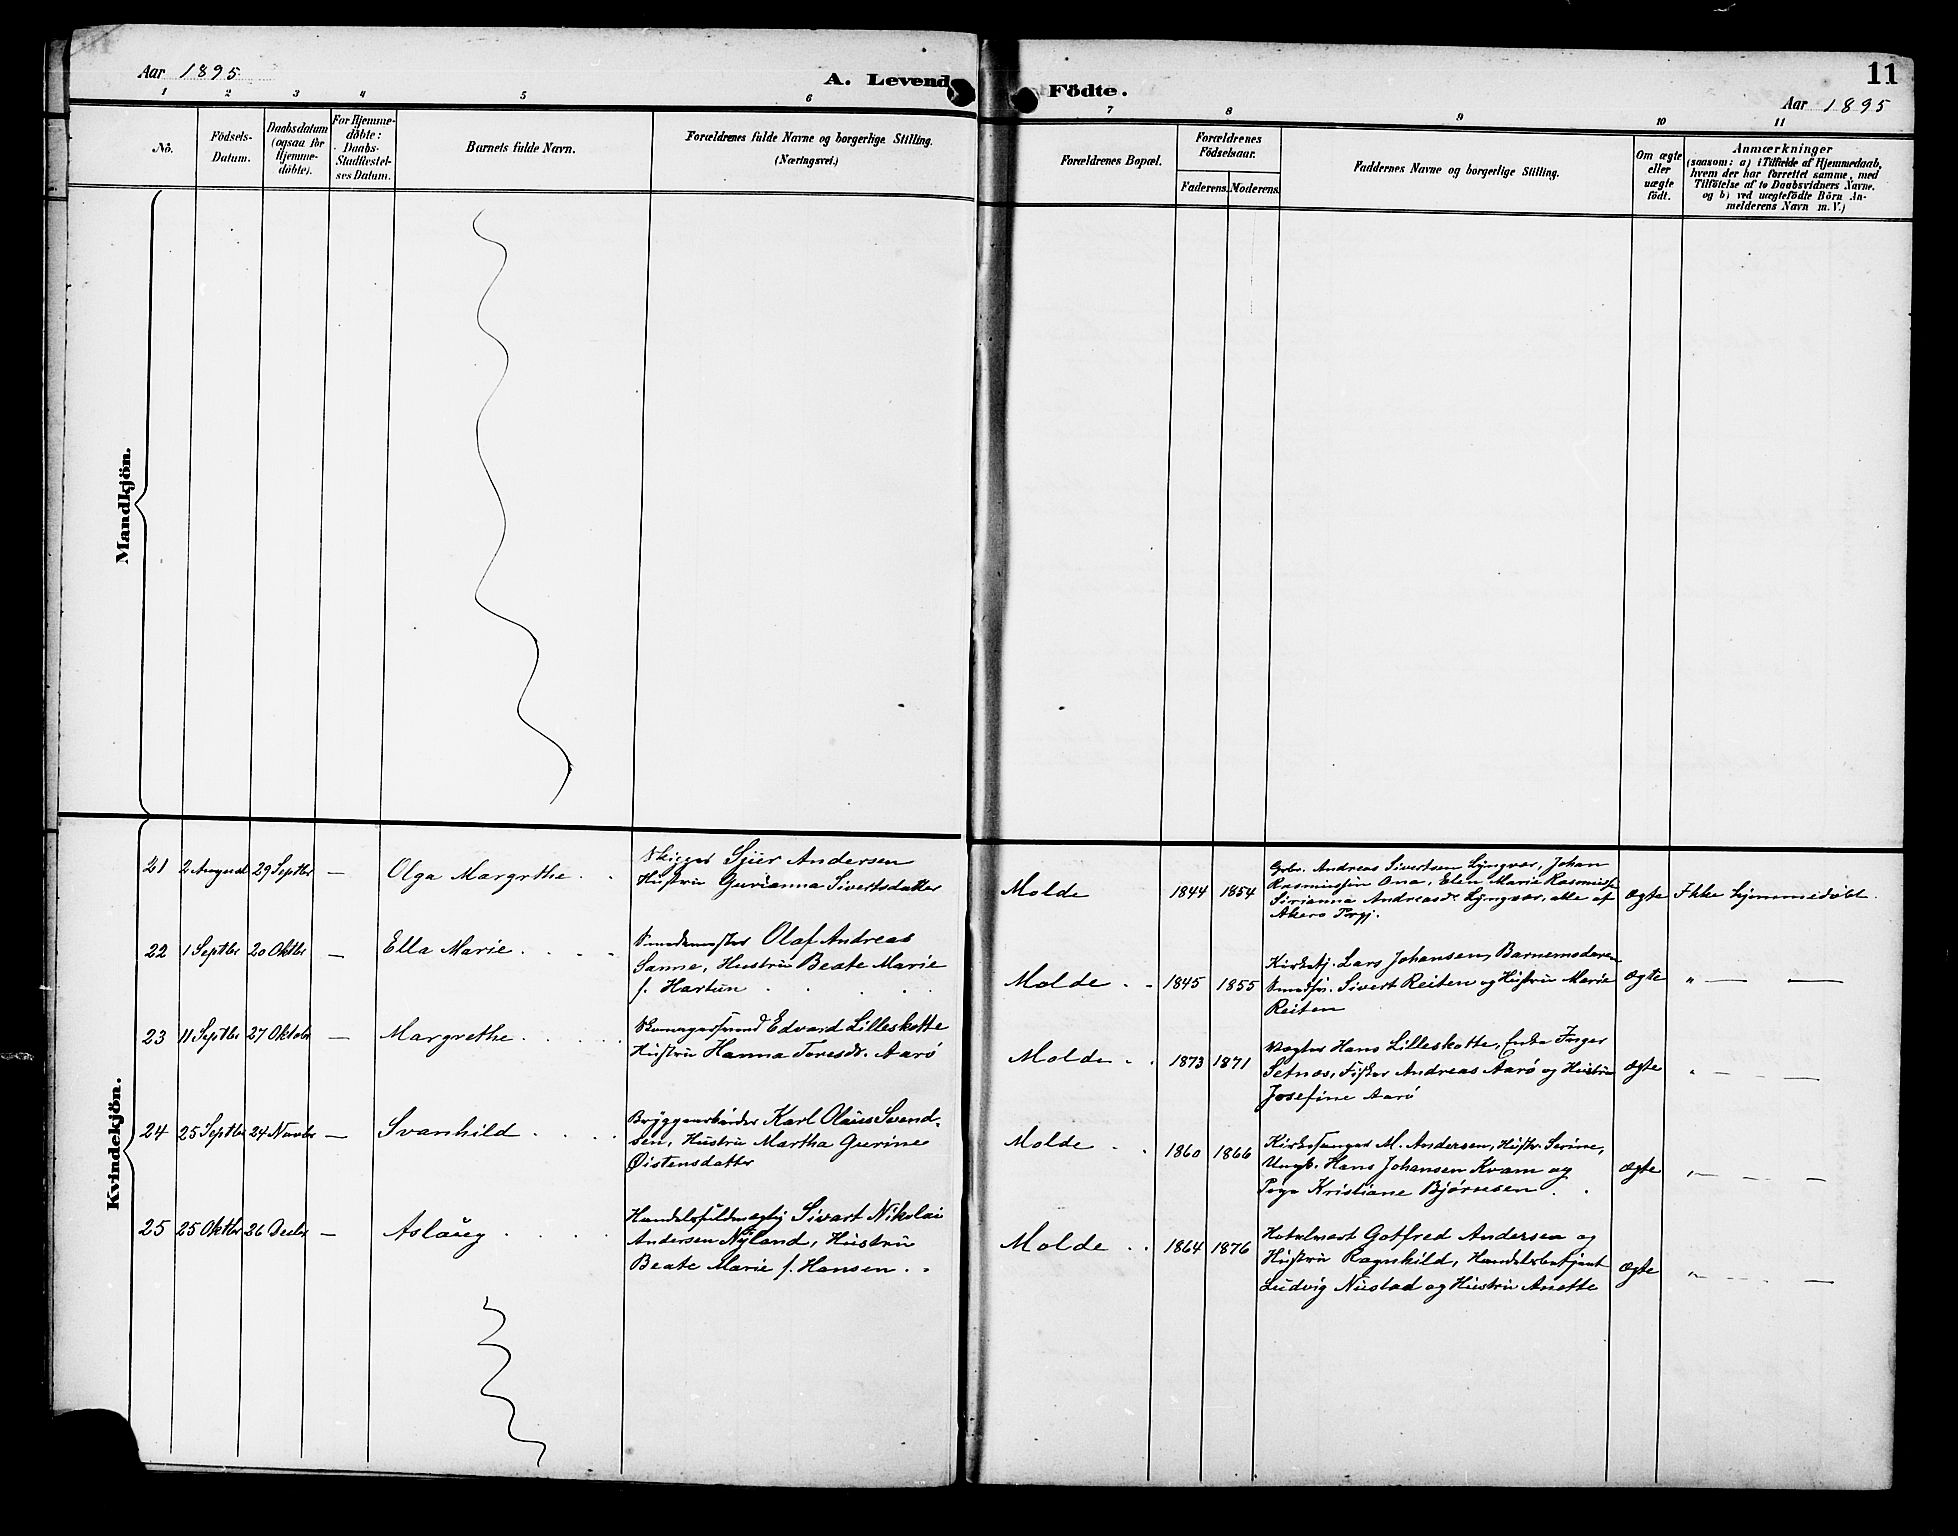 Aar 1895
A. Levend
1 2 3 4 5 6
No.
Födsels-
Datum.
Daabsdatum
(ogsaa for
Hjemme-
döbte).
For Hjemme-
döbte:
Daabs-
Stadfæstel-
ses Datum.
Barnets fulde Navn.
Forældrenes fulde Navne og borgerlige Stilling.
(Næringsvei.)
Mandkjön.
Kvindekjön.
21 2 August 29 Septbr — Olga Margrthe
Andersen
Hustru Gurianna Sivertsdatter
22 1 Septbr 20 Oktbr — Ella Marie
Smedemester Olaf Andreas
Sanne, Hustru Beate Marie
f. Hartun
23 11 Septbr 27 Oktobr — Margrethe
Edvard Lilleskotte
Hustru Hanna Toresdr. Aarö
24 25 Septbr 24 Novbr — Svanhild
Bryggearbeider Karl Olaus Svend-
sen, Hustru Martha Gurine
Øistensdatter
25 25 Oktbr 26 Decbr — Aslaug
Handelsfuldmægtig Sivart Nikolai
Andersen Nyland, Hustru
Beate Marie f. Hansen
Födte.
11
Aar 1895
7 8 9 10 11
Forældrenes Bopæl.
Forældrenes
Födselsaar.
Faderens. Moderens.
Faddernes Navne og borgerlige Stilling.
Om ægte
eller
uægte
födt.
Anmærkninger
(saasom: a) i Tilfælde af Hjemmedaab,
hvem der har forrettet samme, med
Tilföielse af to Daabsvidners Navne.
og b) ved uægtefödte Börn An-
melderens Navn m. V.)
Molde 1844 1854
Grbr. Andreas Sivertsen Lyngvær, Johan
Rasmussen Ona, Elen Marie Rasmuss
Sirianna Andreasdr Lyngvær, alle af
Akerø
Ægte Ikke hjemmedöbt.
Molde 1845 1855
Lars Johansen, Barnemoderen
Sivert Reiten og Hustru Marie
Reiten
Ægte " — —
Molde 1873 1871
Hans Lilleskotte, Enke Inger
Setnæs, Fisker Andreas Aarø og Hustru
Josefine Aarø
Ægte " — —
Molde 1860 1866
Kirkesanger M. Andersen, Hustr. Serine,
Ungk. Hans Johansen Kvam og
Pige Kristiane Bjørnsen
Ægte " — —
Molde 1864 1876
Hotelvært Gotfred Andersen og
Hustru Ragnhild, Handelsbetjent
Ludvig Nustad og Hustru Anette
Ægte " — —